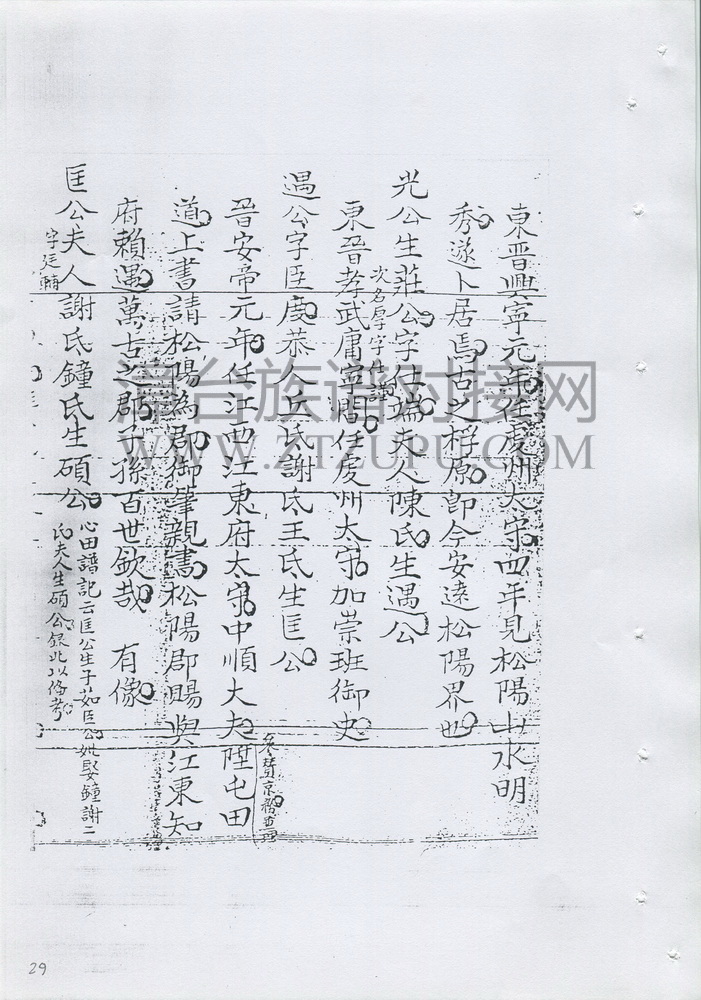 東晉興寧元年任虔州大守四年見松陽山水明
秀遂卜居焉古之桴原即今安遠松陽界也
光公生莊公字仕端夫人陳氏生遇公
次名厚字仕
東晉孝武甯寧間任虔州太守加崇班御史
遇公字匡度恭人丘氏謝氏王氏生匡公
晉安帝元年任江西江東府太守中順大夫陞屯田
道上書請松陽為郡御筆親書松陽郡賜與江東知
府賴遇萬古之郡子孫百世欽哉 有像
匡公夫人謝氏鐘氏生碩公
字廷輔
心田譜記云匡公生子茹匡公妣娶鐘謝二
氏夫人生碩公錄此以俟考
漳台族谱对接网
WWW.ZTZUPU.COM
29